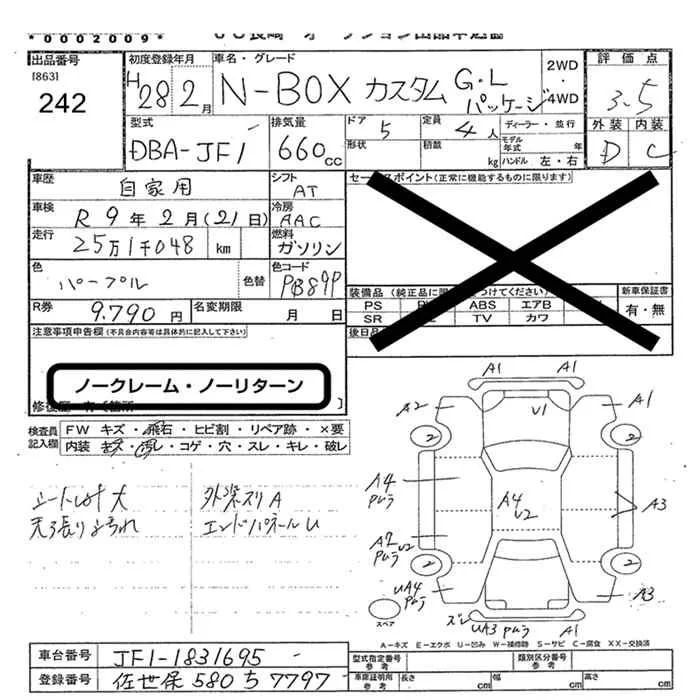 *0002009*
出品番号
[863]
242
初度登録年月
H28 2月
車名・グレード
N-BOX カスタム G・L パッケージ
2WD
・
4WD
評価点
3.5
外装 内装
D C
型式
DBA-JF1
排気量
660cc
ドア 5
形状
定員 4人
積載 kg
ディーラー・並行
モデル年式 年
ハンドル 左・右
車歴 自家用
シフト AT
車検 R9年2月(21日)
冷房 AAC
走行 25万1千048 km
燃料 ガソリン
色 パープル
色替
色コード PB89P
R券 9.790円
名変期限 月 日
セールスポイント(正常に機能するものに限ります)
装備品
新車保証書
PS ABS エアB
有・無
SR TV カワ
後日品
注意事項申告欄(不具合内容等は具体的に記入して下さい)
ノークレーム・ノーリターン
検査員記入欄
FW キズ・飛石・ヒビ割・リペア跡・×要
内装 キズ・汚レ・コゲ・穴・スレ・キレ・破レ
外装スリA
エンドパネールU
A1 A1
A2 U1 A1
2 2
A4 A4 A3
U2
A2 U2
2 2
UA4 A3
スペア
ズレ UA3 A1
A-キズ E-エクボ U-凹み W-補修跡 S-サビ C-腐食 XX-交換済
車台番号 JF1-1831695
登録番号 佐世保 580 ち 7797
型式指定番号 参考
類別区分番号 参考
車庫証明所 参考
長さ cm
幅 cm
高さ cm